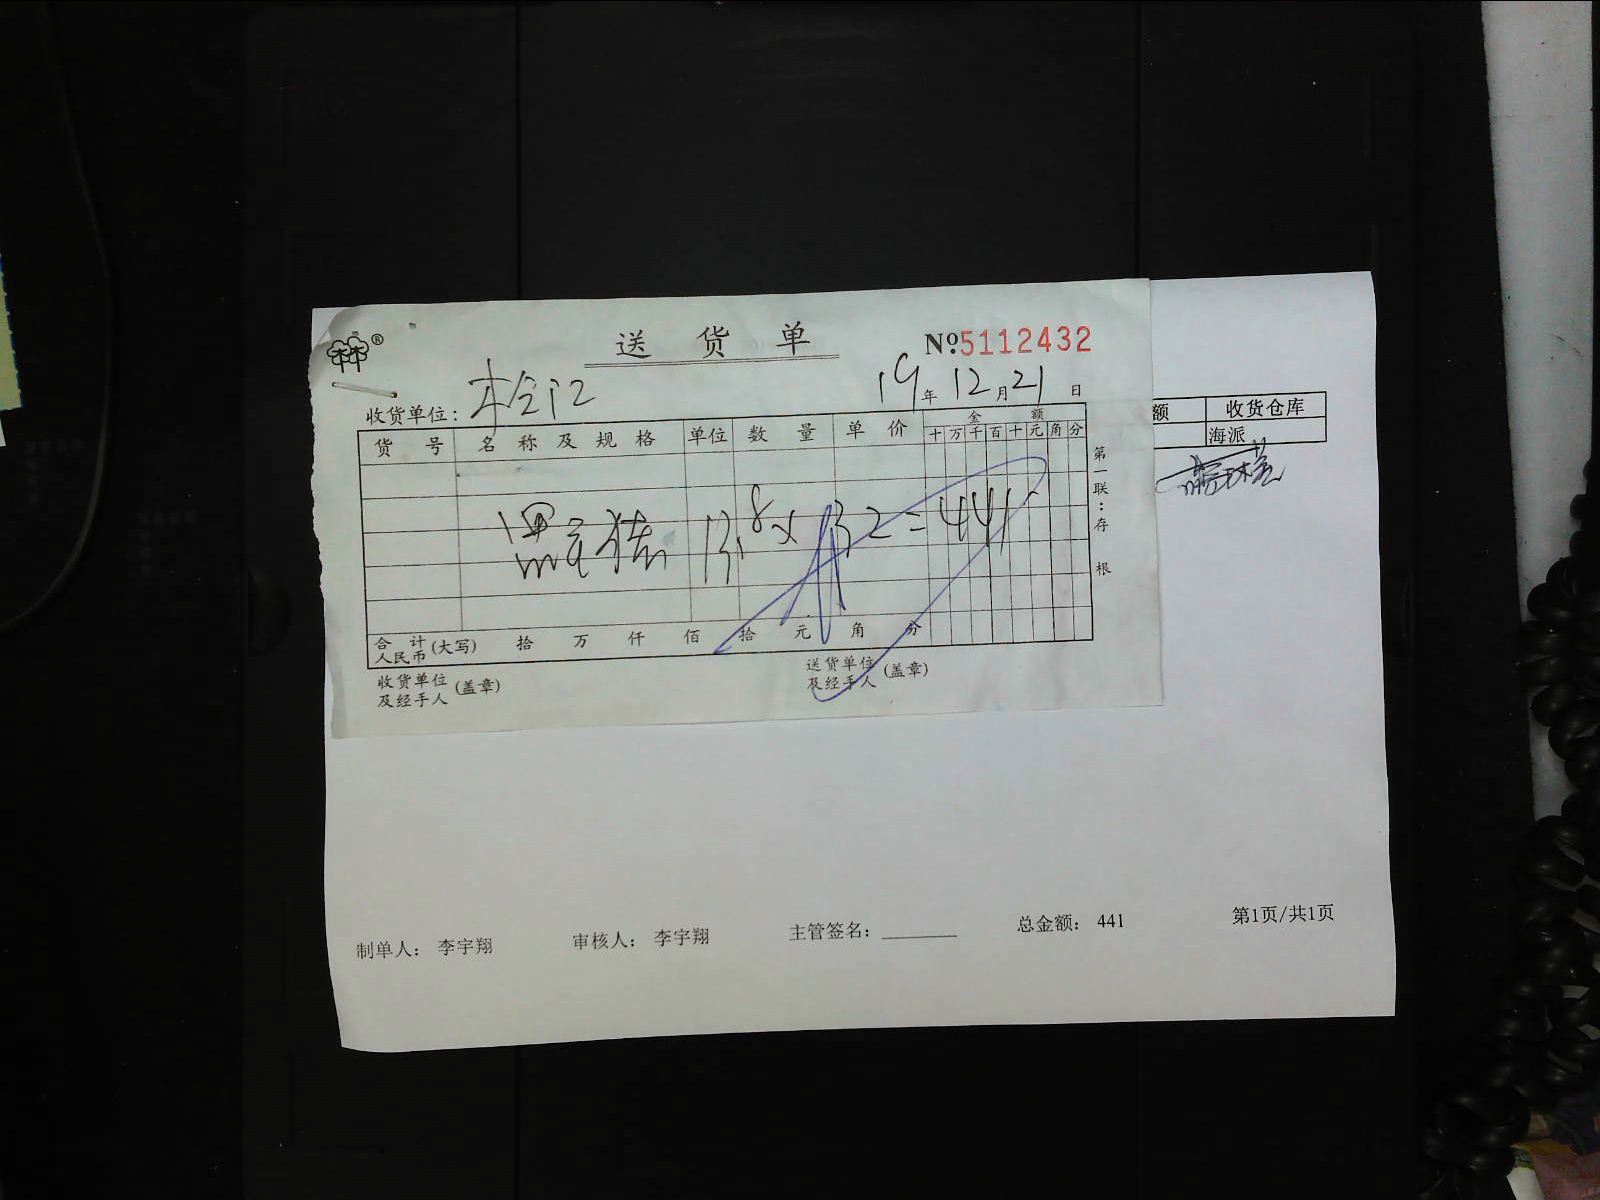 林®
送货单
№5112432
19年12月21日
收货单位：
货号 名称及规格 单位 数量 单价 金额
十万千百十元角分
13.8 × 32 = 441
合计(大写) 拾 万 仟 佰 拾 元 角 分
人民币
收货单位及经手人(盖章)
送货单位及经手人(盖章)
第一联：存根
额 收货仓库
海派
制单人： 李宇翔 审核人： 李宇翔 主管签名： 总金额： 441 第1页/共1页